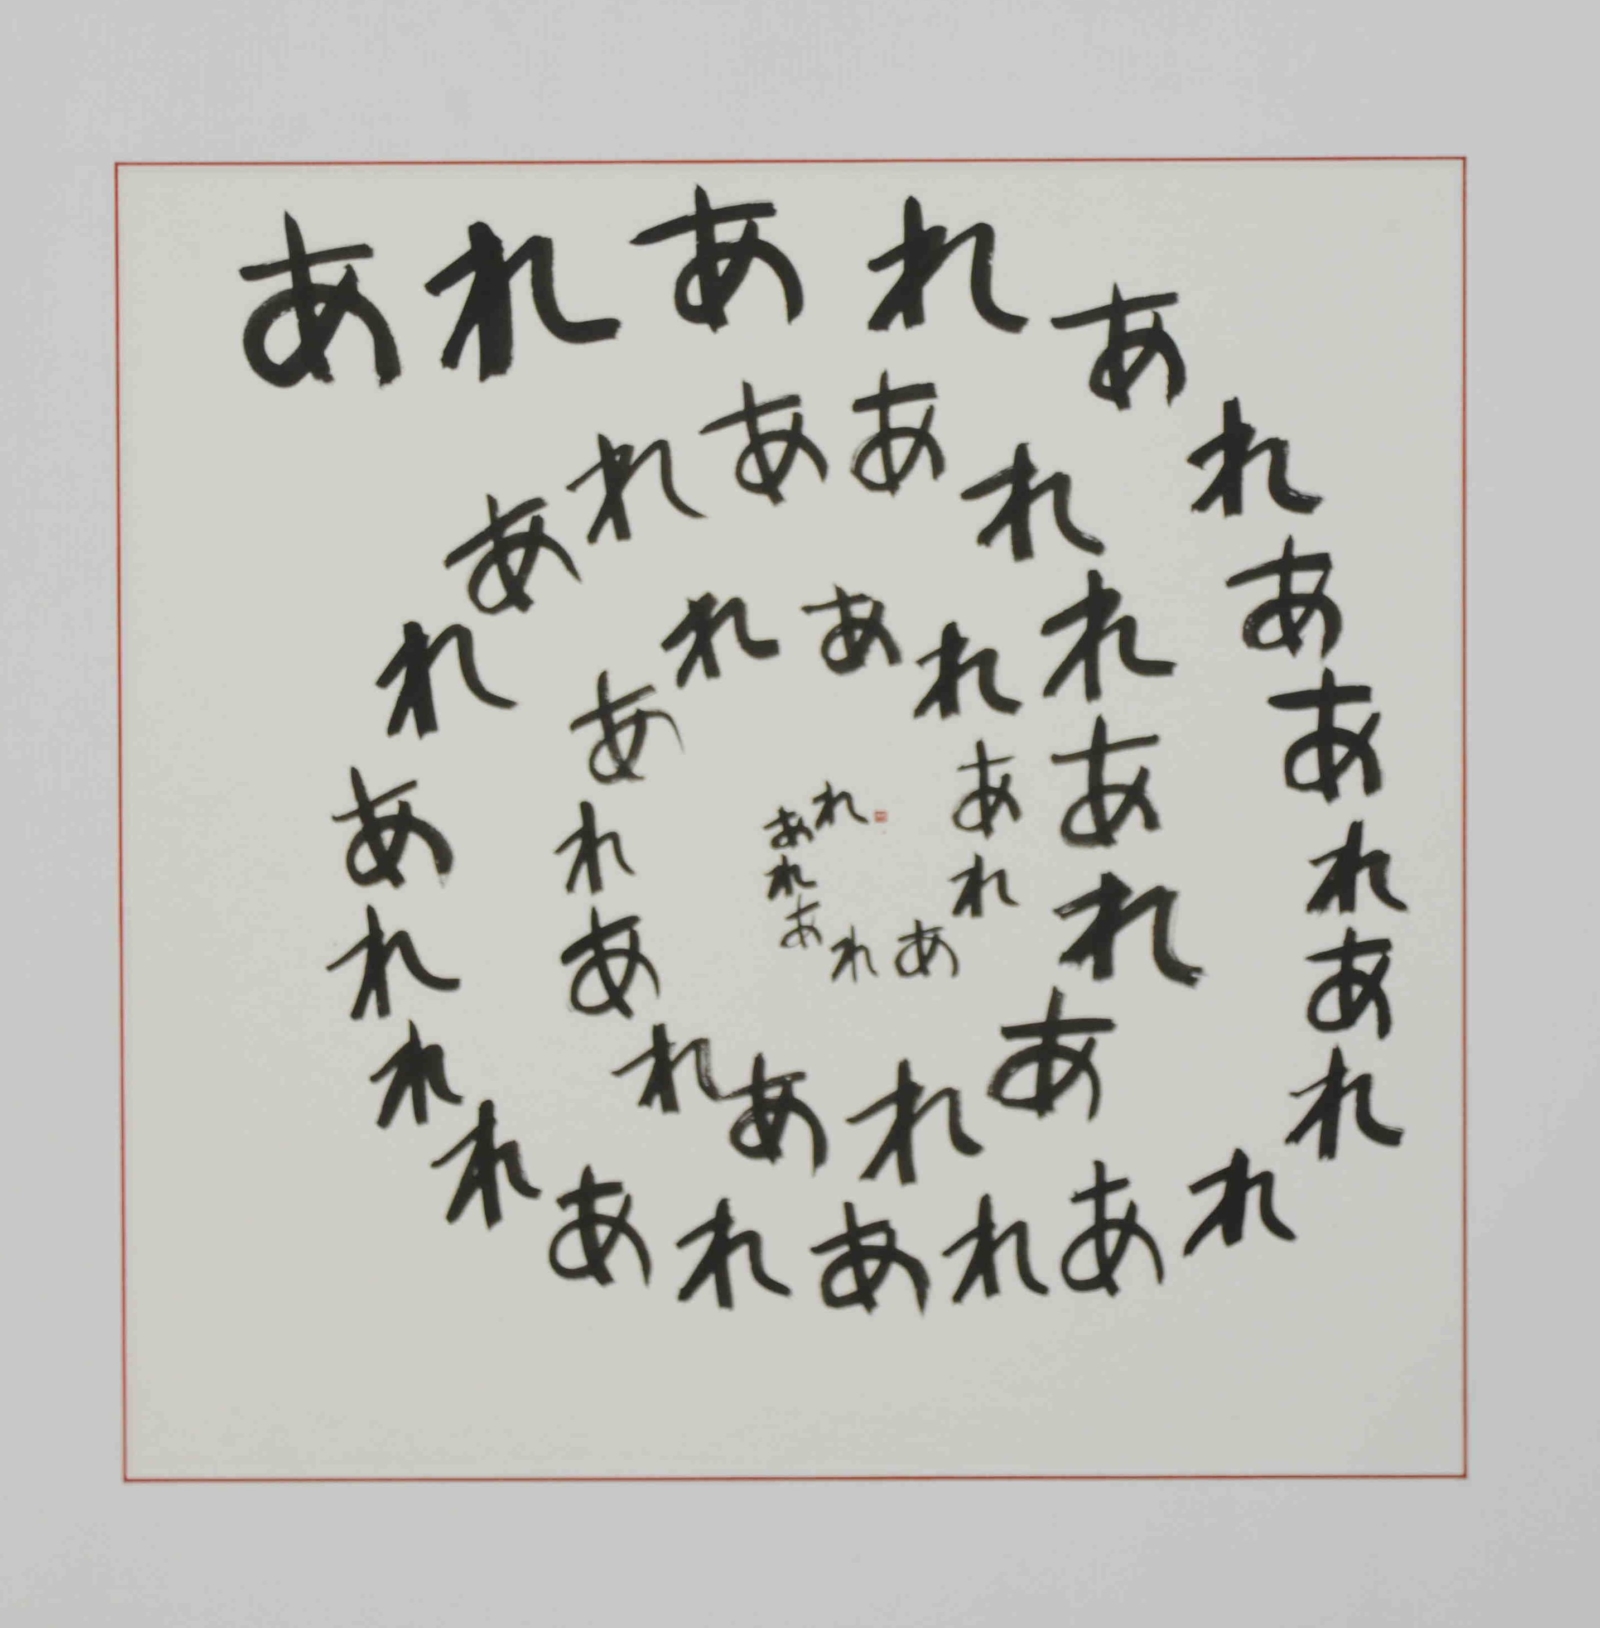 あれあれあれああれあれれあれあれあれれれあれあれああれれあれあれあれあれあれあれあれあれあれあれ